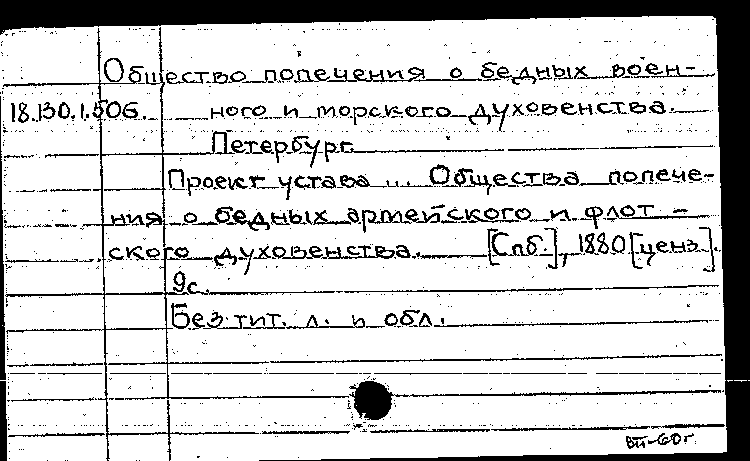 Общество попечения о бедных воен-
18.130.1.506. ного и морского духовенства.
Петербург.
Проект устава ... Общества попече-
ния о бедных армейского и флот-
ского духовенства. [Спб.], 1880 [ценз].
9с.
Без тит. л. и обл.
вп-60г